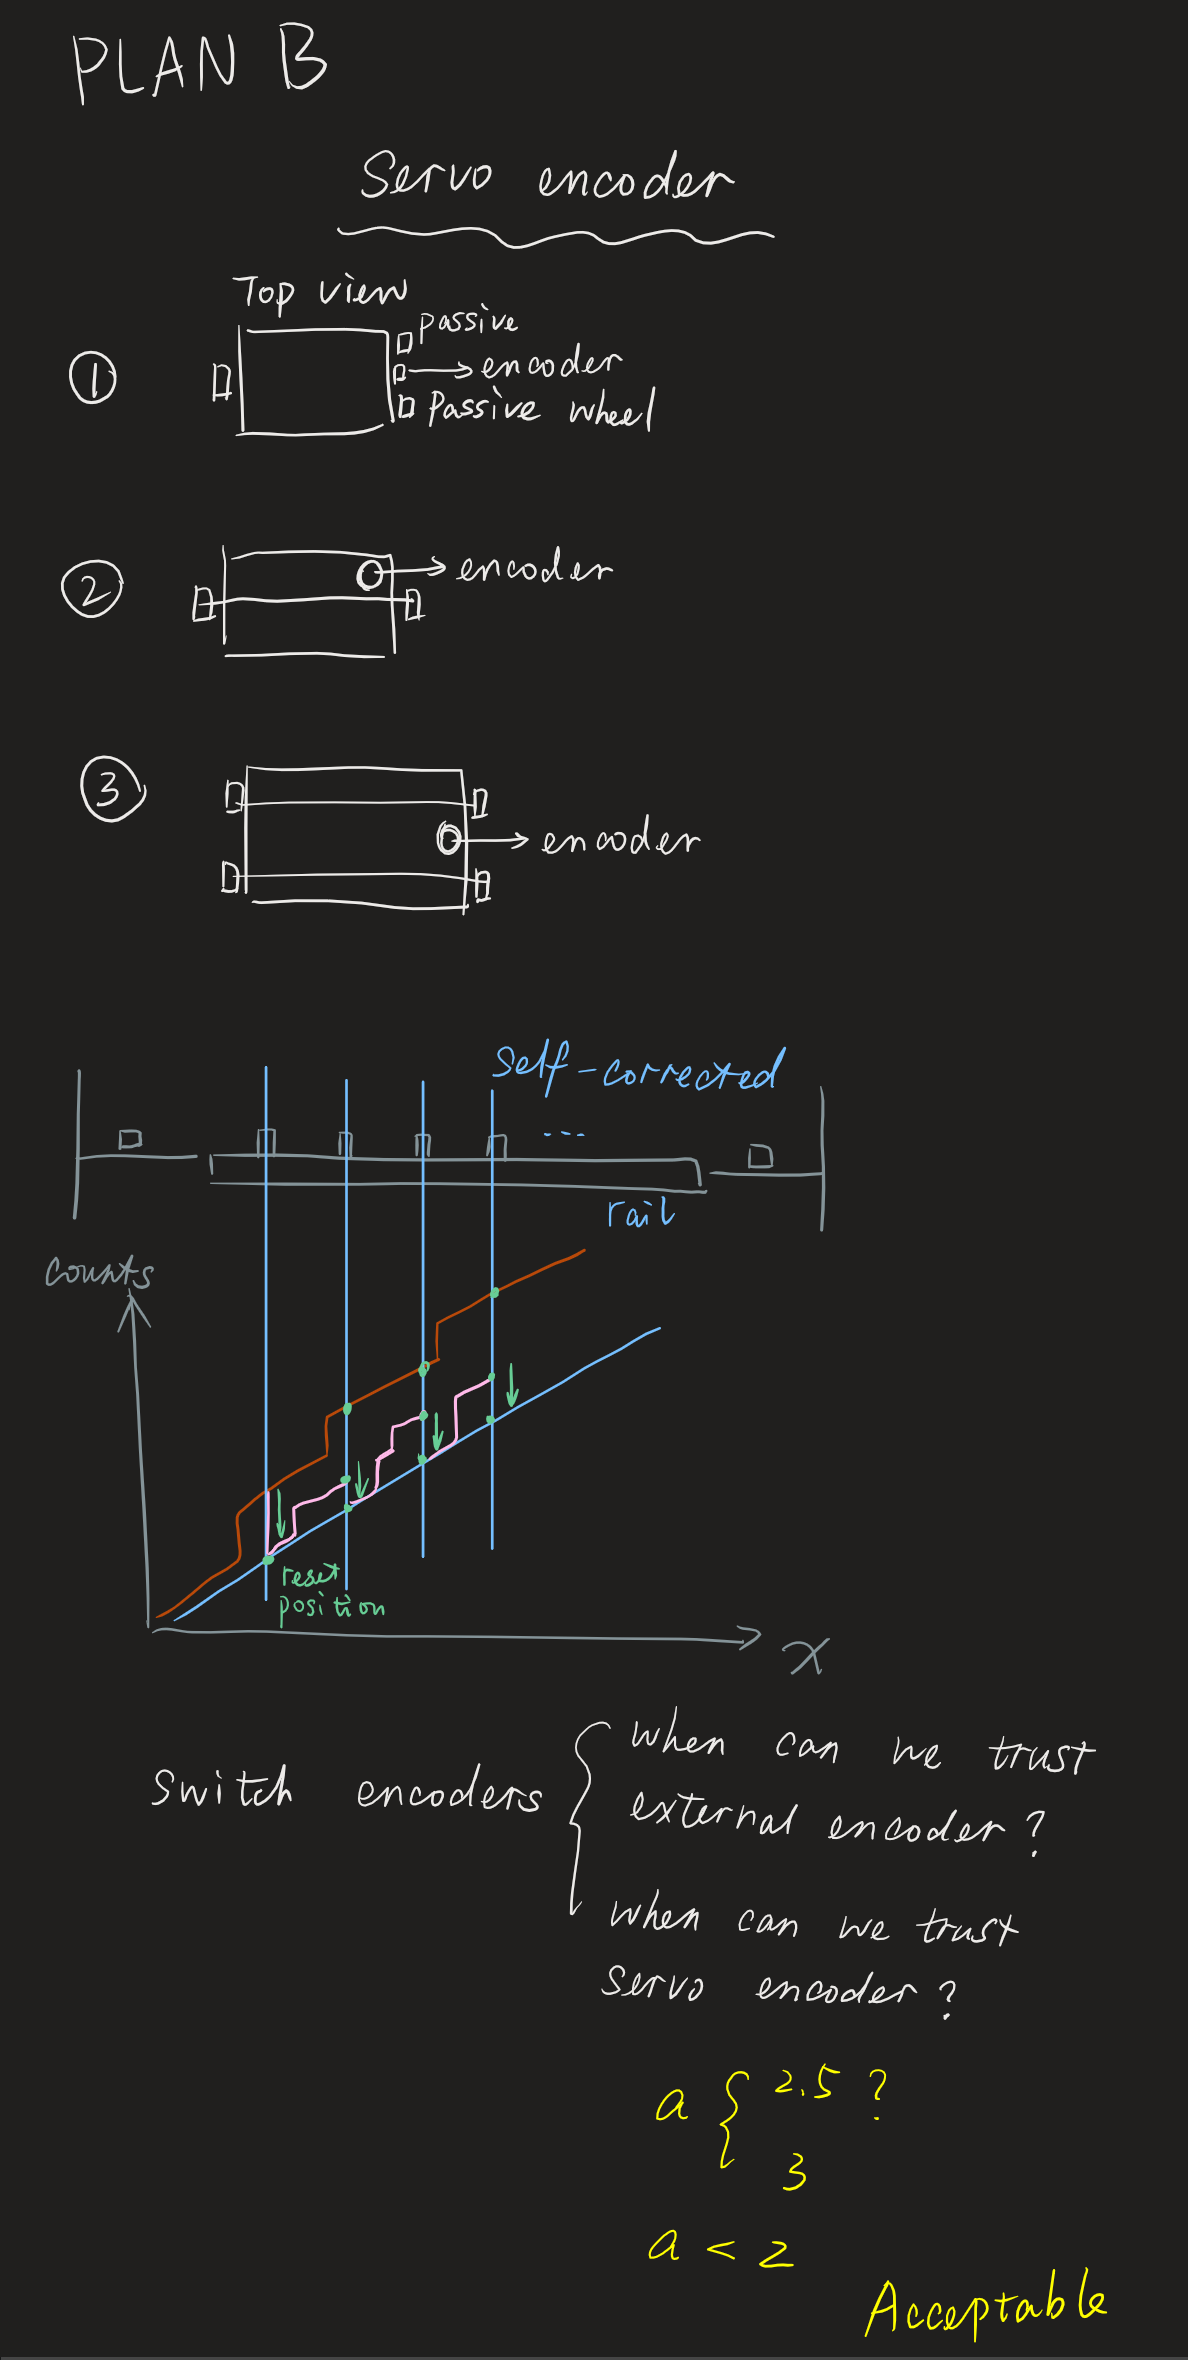 PLAN B
Servo encoder
Top view
①
passive
encoder
Passive wheel
②
encoder
③
encoder
Self-corrected
...
rail
counts
reset
position
x
Switch encoders
when can we trust
external encoder?
when can we trust
servo encoder?
a { 2.5 ?
3
a < 2
Acceptable